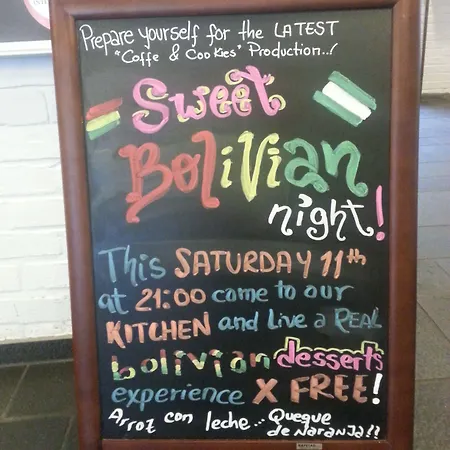 Prepare yourself for the LATEST
"Coffe & Cookies" Production..!
Sweet
Bolivian
night!
This SATURDAY 11th
at 21:00 come to our
KITCHEN and Live a REAL
bolivian desserts
experience X FREE!
Arroz con leche... Queque
de Naranja!!